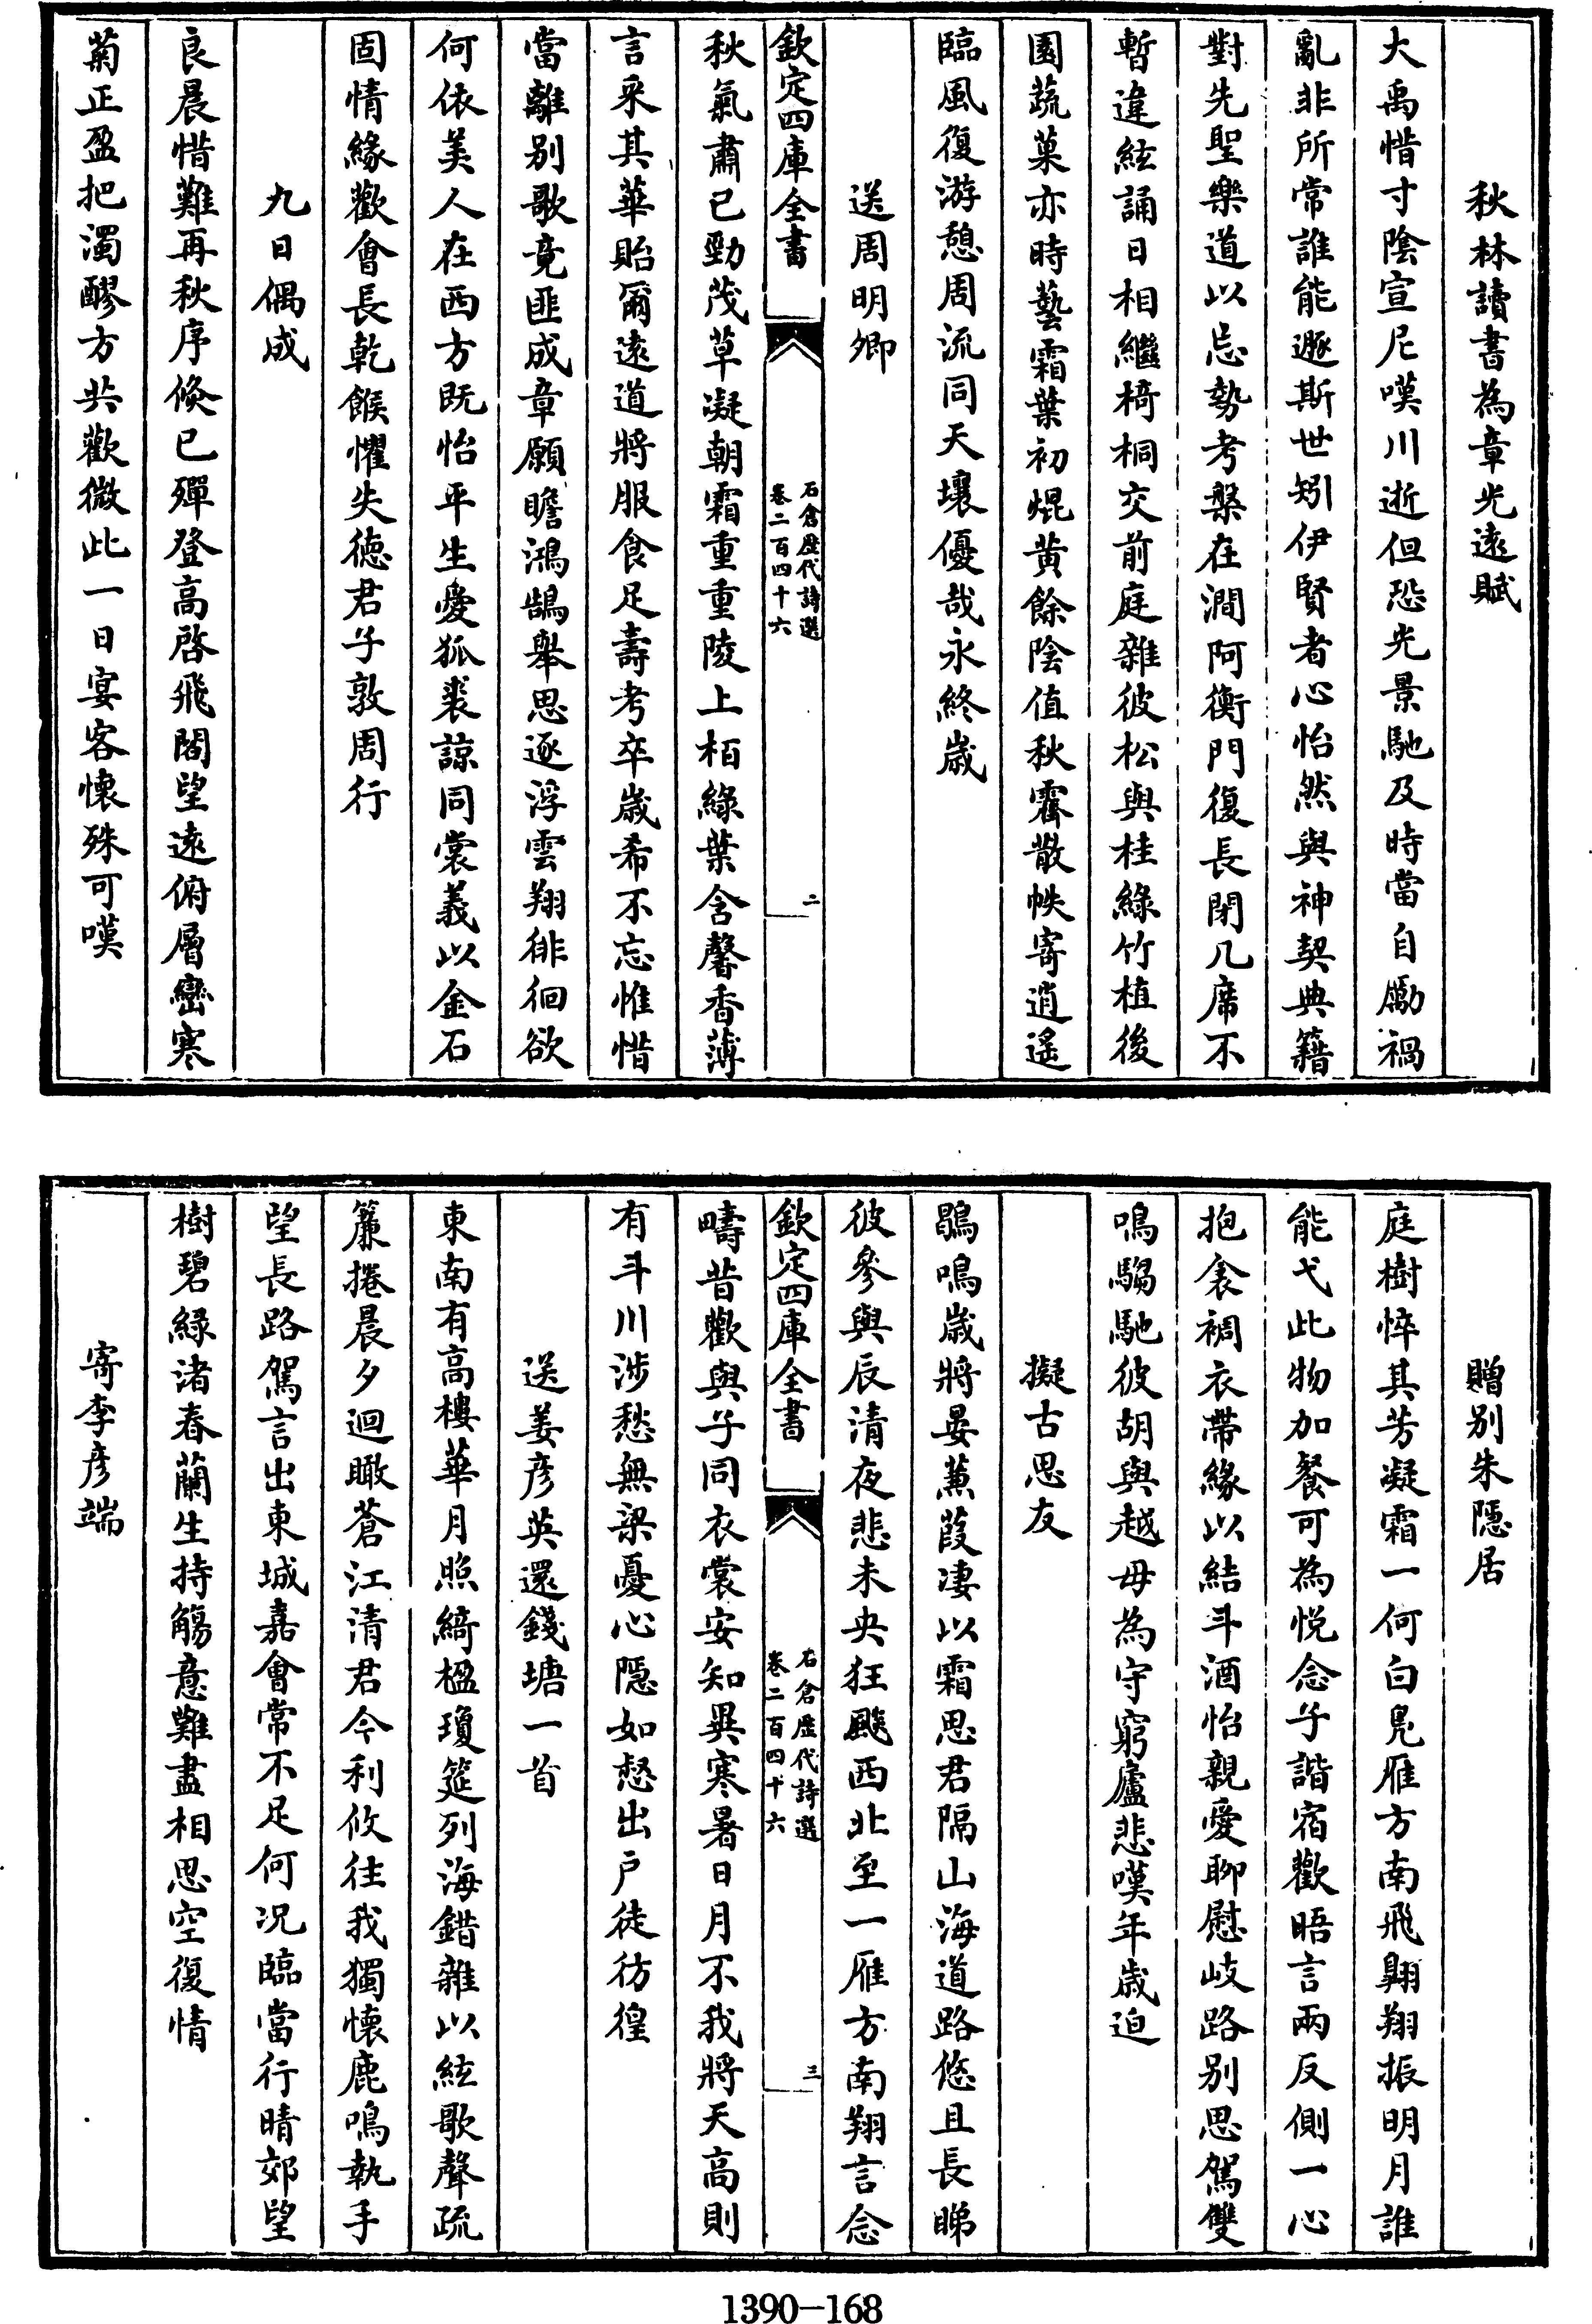 秋林讀書為章光遠賦
大禹惜寸陰宣尼嘆川逝但恐光景馳及時當自勵禍
亂非所常誰能遯斯世矧伊賢者心怡然與神契典籍
對先聖樂道以忘勢考槃在澗阿衡門復長閉几席不
暫違絃誦日相繼椅桐交前庭雜彼松與桂綠竹植後
園蔬菓亦時藝霜葉初焜黃餘陰值秋霽散帙寄逍遙
臨風復游憩周流同天壤優哉永終歲
送周明卿
欽定四庫全書
石倉歷代詩選
卷二百四十六
二
秋氣肅已勁茂草凝朝霜重重陵上栢綠葉含馨香薄
言采其華貽爾遠道將服食足壽考卒歲希不忘惟惜
當離別歌竟匪成章願瞻鴻鵠舉思逐浮雲翔徘徊欲
何依美人在西方既怡平生愛狐裘諒同裳義以金石
固情緣歡會長乾餱懼失德君子敦周行
九日偶成
良晨惜難再秋序倏已殫登高啓飛閣望遠俯層巒寒
菊正盈把濁醪方共歡微此一日宴客懷殊可嘆
贈別朱隱居
庭樹悴其芳凝霜一何白鳧雁方南飛翺翔振明月誰
能弋此物加餐可為悅念子諧宿歡晤言兩反側一心
抱衾裯衣帶緣以結斗酒怡親愛聊慰岐路別思駕雙
鳴騶馳彼胡與越毋為守窮廬悲嘆年歲迫
擬古思友
鶗鳴歲將晏蒹葭淒以霜思君隔山海道路悠且長睇
彼參與辰清夜悲未央狂飈西北至一雁方南翔言念
欽定四庫全書
石倉歷代詩選
卷二百四十六
三
疇昔歡與子同衣裳安知異寒暑日月不我將天高則
有斗川涉愁無梁憂心隱如惄出戶徒彷徨
送姜彥英還錢塘一首
東南有高樓華月照綺楹瓊筵列海錯雜以絃歌聲疏
簾捲晨夕迴瞰蒼江清君今利攸往我獨懷鹿鳴執手
望長路駕言出東城嘉會常不足何况臨當行晴郊望
樹碧綠渚春蘭生持觴意難盡相思空復情
寄李彥端
1390-168